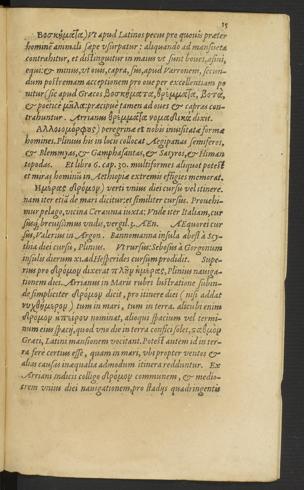 15
Βοσκήματα) Vt apud Latinos pecu pro quouis præter
hominē animali sæpe vsurpatur: aliquando ad mansueta
contrahitur, et distinguitur in maius vt sunt boues, asini,
equi: & minus, vt oues, capra, sus, apud Varronem, secun-
dum postremam acceptionem pro oue per excellentiam po
nitur (sic apud Græcos Βοσκήματα, θρέμματα, Βοτὰ,
& poëticè μῆλα: præcipuè tamen ad oues & capras con-
trahuntur. Arrianus θρέμματα νομαδικὰ dixit.
Αλλοιομόρφους) peregrinæ et nobis inusitatæ formæ
homines. Plinius his in locis collocat Aegipanas semiferos,
& Blemmyas, & Gamphasantas, & Satyros, & Himan
topodas. Et libro 6. cap. 30. multiformes aliquot potest
et miras hominū in Aethiopia extremis effigies memorat.
Ημέρας δρόμον) verti vnius diei cursu vel itinere.
nam iter etiā de mari dicitur: et similiter cursus. Prouehi-
mur pelago, vicina Ceraunia iuxta: Vnde iter Italiam, cur
susq́; breuissimus vndis, vergil. 3. AEn. AEquorei cur
sus, Valerius in Argon. Bannomanna insula abest à Scy-
thia diei cursu, Plinius. Vt rursus: Sebosus à Gorgonum
insulis dierum xl. ad Hesperides cursum prodidit. Supe-
rius pro δρόμον dixerat πλοῦν ἡμέρας, Plinius nauiga-
tionem diei. Arrianus in Maris rubri lustratione subin-
de simpliciter δρόμον dicit, pro itinere diei (nisi addat
νυχθήμερον) tum in mari, tum in terra. alicubi enim
δρόμον ἠπείρου nominat, alioqui spacium vel termi-
num eius spacij, quod vno die in terra confici solet, σταθμὸν
Græci, Latini mansionem vocitant. Potest autem id in ter-
ra ferè certius esse, quam in mari, vbi propter ventos &
alias causas inæqualia admodum itinera redduntur. Ex
Arriani indicis colligo δρόμον communem, & medio-
crem vnius diei nauigationem, pro stadijs quadringentis